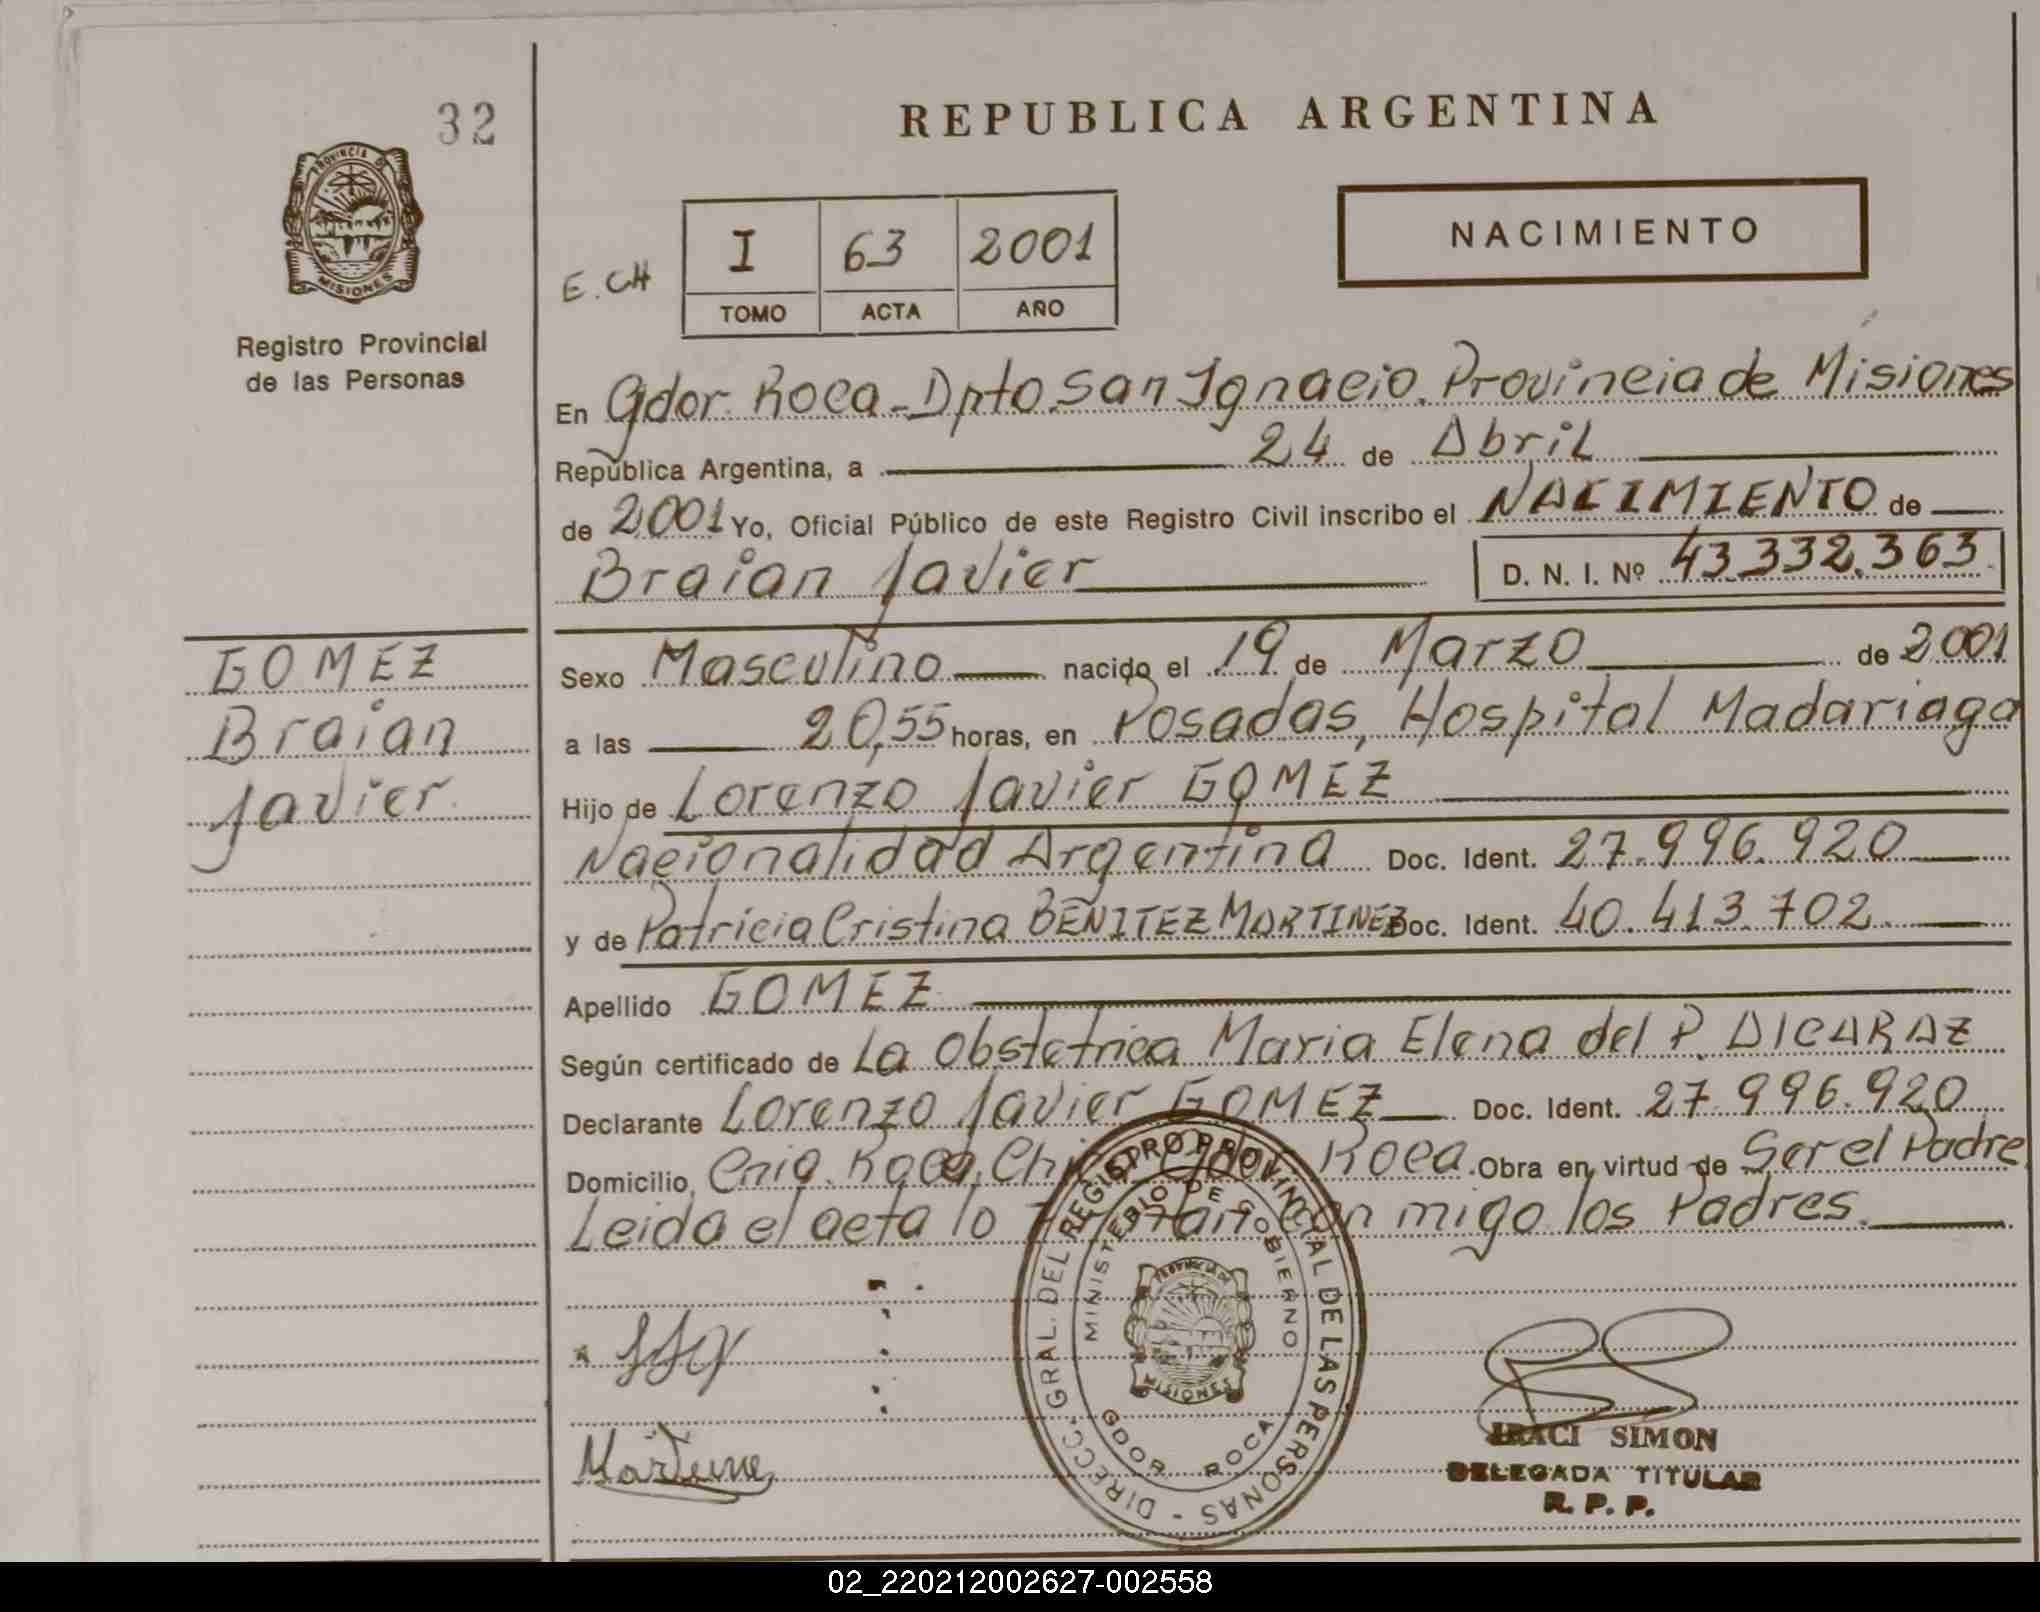 32
REPUBLICA ARGENTINA
PROVINCIA DE
MISIONES
Registro Provincial
de las Personas
NACIMIENTO
E.CH
I 63 2001
TOMO ACTA AÑO
En Gdor. Roca - Dpto San Ignacio. Provincia de Misiones
República Argentina, a 24 de Abril
de 2001 Yo, Oficial Público de este Registro Civil inscribo el NACIMIENTO de
Braian Javier D. N. I. Nº 43.332.363
GOMEZ
Braian
Javier
Sexo Masculino nacido el 19 de Marzo de 2001
a las 20,55 horas, en Posadas, Hospital Madariaga
Hijo de Lorenzo Javier GOMEZ
Nacionalidad Argentina Doc. Ident. 27.996.920
y de Patricia Cristina BENITEZ MARTINEZ Doc. Ident. 40.413.702
Apellido GOMEZ
Según certificado de La Obstetrica Maria Elena del P. AlCARAZ
Declarante Lorenzo Javier GOMEZ Doc. Ident. 27.996.920
Domicilio Roca Roca. Obra en virtud de Ser el Padre
Leida el acta lo con migo los Padres.
DIRECC. GRAL. DEL REGISTRO PROVINCIAL DE LAS PERSONAS
MINISTERIO DE GOBIERNO
PROVINCIA DE
MISIONES
GDOR ROCA
IRACI SIMON
DELEGADA TITULAR
R. P. P.
02_220212002627-002558